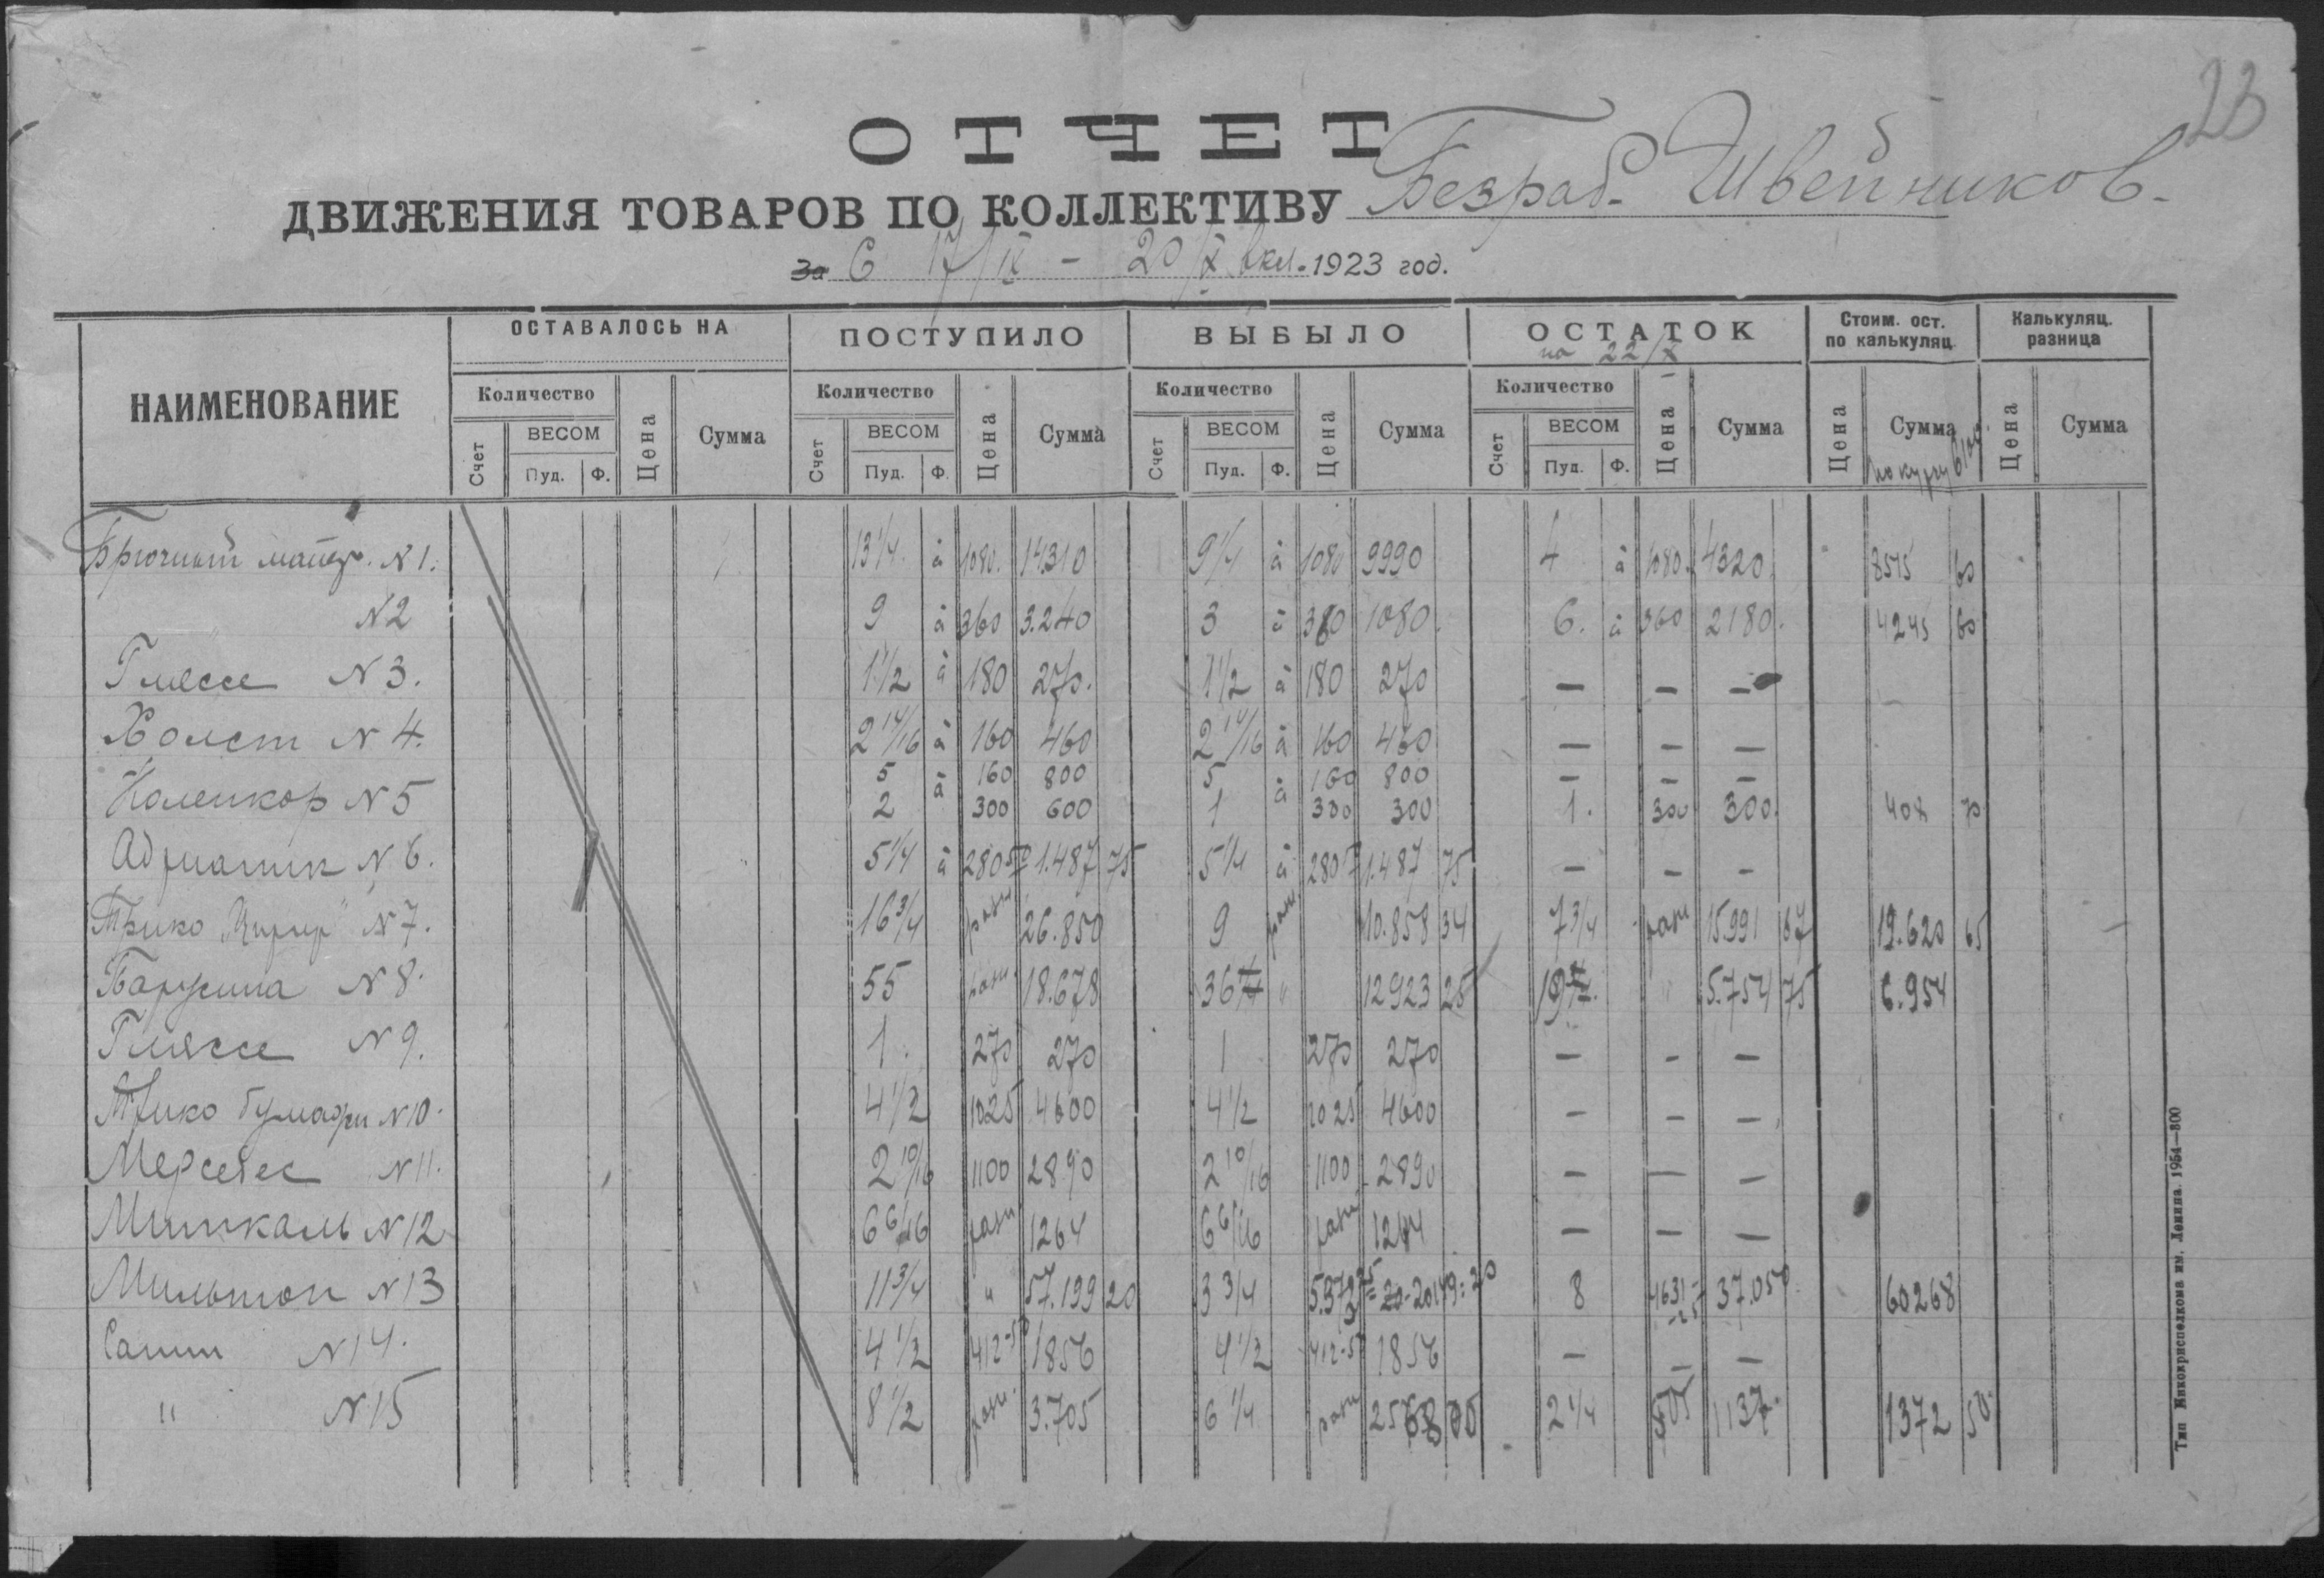 23
ОТЧЕТ
ДВИЖЕНИЯ ТОВАРОВ ПО КОЛЛЕКТИВУ Безраб. Швейников.
за С 17/IX - 20/X вкл. 1923 год.
НАИМЕНОВАНИЕ ОСТАВАЛОСЬ НА ПОСТУПИЛО ВЫБЫЛО ОСТАТОК на 22/X Стоим. ост. по калькуляц. Калькуляц. разница
Количество Цена Сумма Количество Цена Сумма Количество Цена Сумма Количество Цена Сумма Цена Сумма по курсу Цена Сумма
Счет ВЕСОМ Счет ВЕСОМ Счет ВЕСОМ Счет ВЕСОМ
Пуд. Ф. Пуд. Ф. Пуд. Ф. Пуд. Ф.
Брючный матер. N 1. 13 1/4 à 1080. 14310 9 1/4 à 1080 9990 4 à 1080. 4320 8515 60
N 2 9 à 360 3.240 3 à 360 1080. 6. à 360 2180. 4245 60
Глясse N 3. 1 1/2 à 180 270. 1 1/2 à 180 270 — — —
Холст N 4. 2 14/16 à 160 460 2 14/16 à 160 460 — — —
5 à 160 800 5 à 160 800 — — —
Коленкор N 5 2 300 600 1 300 300 1. 300 300. 408 70
Адриатик N 6. 5 1/4 à 280 50 1.487 75 5 1/4 à 280 1.487 75 — — —
Трико N 7. 16 3/4 разн 26.850 9 разн 10.858 34 7 3/4 разн 15.991 67 19.620 65
Парусина N 8. 55 разн. 18.678 36 " 12923 25 19 " 5.754 75 6.954
Глясse N 9. 1. 270 270 1 270 270 — — —
Трико бумажн N 10. 4 1/2 1025 4600 4 1/2 1025 4600 — — —
Мерседес N 11. 2 10/16 1100 2890 2 10/16 1100 2890 — — —
Миткаль N 12 6 6/16 разн 1264 6 6/16 разн 1264 — — —
Мильтон N 13 11 3/4 " 57.199 20 3 3/4 20149: 20 8 4631-25 37.050. 60268
Сатин N 14. 4 1/2 412-50 1856 4 1/2 412-50 1856 — — —
" N 15 8 1/2 разн. 3.705 6 1/4 разн 2568 00 2 1/4 505 1137. 1372 50
Тип Никокрисполкома им. Ленина. 1954—800